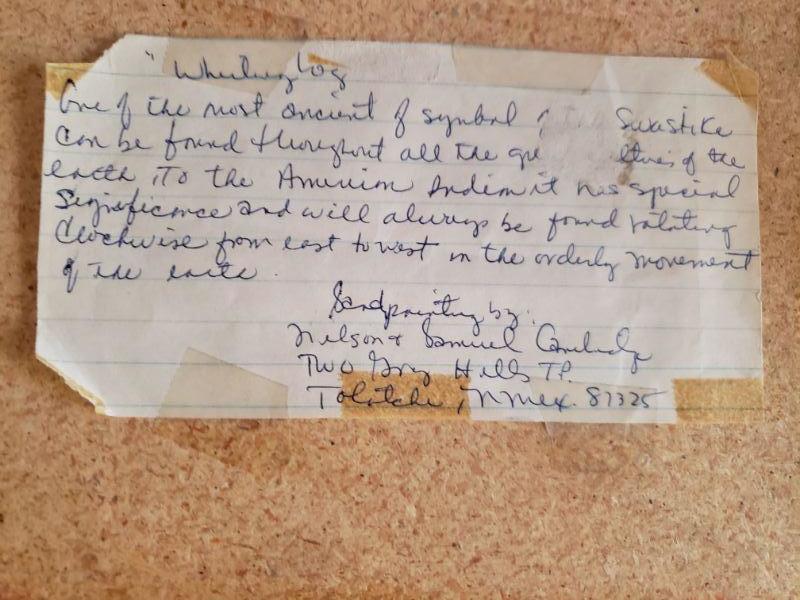 " Whirling log
One of the most ancient of symbol Swastika
can be found throughout all the of the
earth. To the American Indian it has special
Significance and will always be found rotating
Clockwise from east to west in the orderly movement
of the earth.
Sandpainting by:
Nelson & Samuel
Two Grey Hills T.P.
Tohatchi, N Mex. 87325